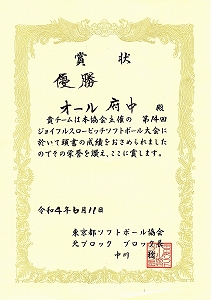 賞状
優勝
オール府中 殿
貴チームは本協会主催の 第14回
ジョイフルスローピッチソフトボール大会に
於いて頭書の成績をおさめられました
のでその栄誉を讃え、ここに賞します。
令和4年6月11日
東京都ソフトボール協会
ブロック ブロック長
中川